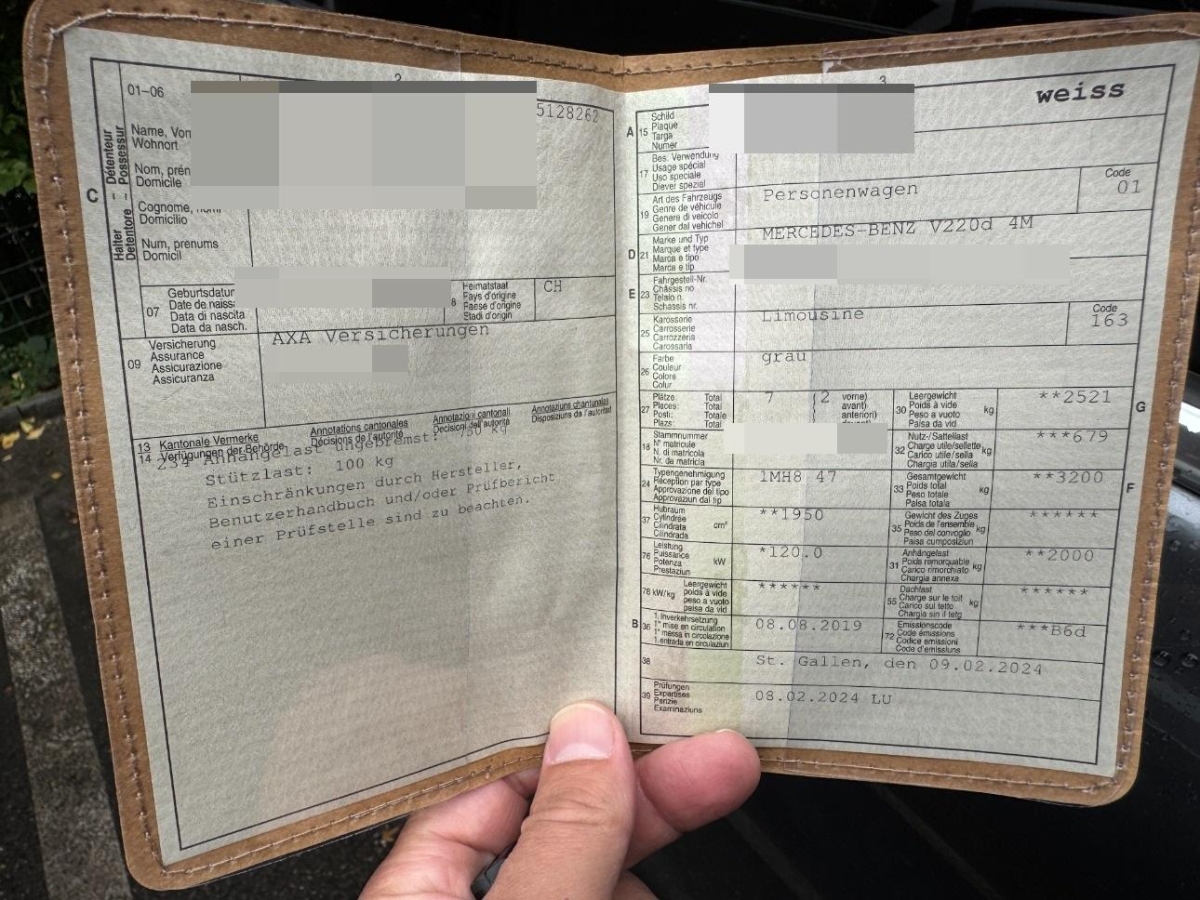 2
01-06
5128262
C
Halter – Détenteur
Detentore – Possessur
Name,
Wohnort
Nom,
Domicile
Cognome,
Domicilio
Num, prenums
Domicil
07
Geburtsdatum
Date de
Data di nascita
Data da nasch.
8
Heimatstaat
Pays d'origine
Paese d'origine
Stadi d'origin
CH
09
Versicherung
Assurance
Assicurazione
Assicuranza
AXA Versicherungen
13 Kantonale Vermerke
14 Verfügungen der Behörde
Annotations cantonales
Décisions de l'autorité
Annotazioni cantonali
Decisioni dell'autorità
Annotaziuns chantunalas
Disposiziuns da l'autoritad
234 Anhängelast ungebremst: 750 kg
Stützlast: 100 kg
Einschränkungen durch Hersteller,
Benutzerhandbuch und/oder Prüfbericht
einer Prüfstelle sind zu beachten.
3
A 15
Schild
Plaque
Targa
Numer
weiss
17
Bes. Verwendung
Usage spécial
Uso speciale
Diever spezial
19
Art des Fahrzeugs
Genre de véhicule
Genere di veicolo
Gener dal vehichel
Personenwagen
Code
01
D 21
Marke und Typ
Marque et type
Marca e tipo
Marca e tip
MERCEDES-BENZ V220d 4M
E 23
Fahrgestell-Nr.
Châssis no
Telaio n.
Schassis nr.
25
Karosserie
Carrosserie
Carrozzeria
Carossaria
Limousine
Code
163
26
Farbe
Couleur
Colore
Colur
grau
27
Plätze: Total
Places: Total
Posti: Totale
Plazs: Total
7 (2 vorne)
avant)
anteriori)
30
Leergewicht
Poids à vide
Peso a vuoto
Paisa da vid
kg
**2521
G
18
Stammnummer
N° matricule
N. di matricola
Nr. da matricla
32
Nutz-/Sattellast
Charge utile/sellette
Carico utile/sella
Chargia utila/sella
kg
***679
24
Typengenehmigung
Réception par type
Approvazione del tipo
Approvaziun dal tip
1MH8 47
33
Gesamtgewicht
Poids total
Peso totale
Paisa totala
kg
**3200
F
37
Hubraum
Cylindrée
Cilindrata
Cilindrada
cm³
**1950
35
Gewicht des Zuges
Poids de l'ensemble
Peso del convoglio
Paisa cumposiziun
kg
******
76
Leistung
Puissance
Potenza
Prestaziun
kW
*120.0
31
Anhängelast
Poids remorquable
Carico rimorchiato
Chargia annexa
kg
**2000
78 kW/kg
Leergewicht
poids à vide
peso a vuoto
paisa da vid
******
55
Dachlast
Charge sur le toit
Carico sul tetto
Chargia sin il tetg
kg
******
B 36
1. Inverkehrsetzung
1re mise en circulation
1a messa in circolazione
1. entrada en circulaziun
08.08.2019
72
Emissionscode
Code émissions
Codice emissioni
Code d'emissiuns
***B6d
38
St. Gallen, den 09.02.2024
39
Prüfungen
Expertises
Perizie
Examinaziuns
08.02.2024 LU